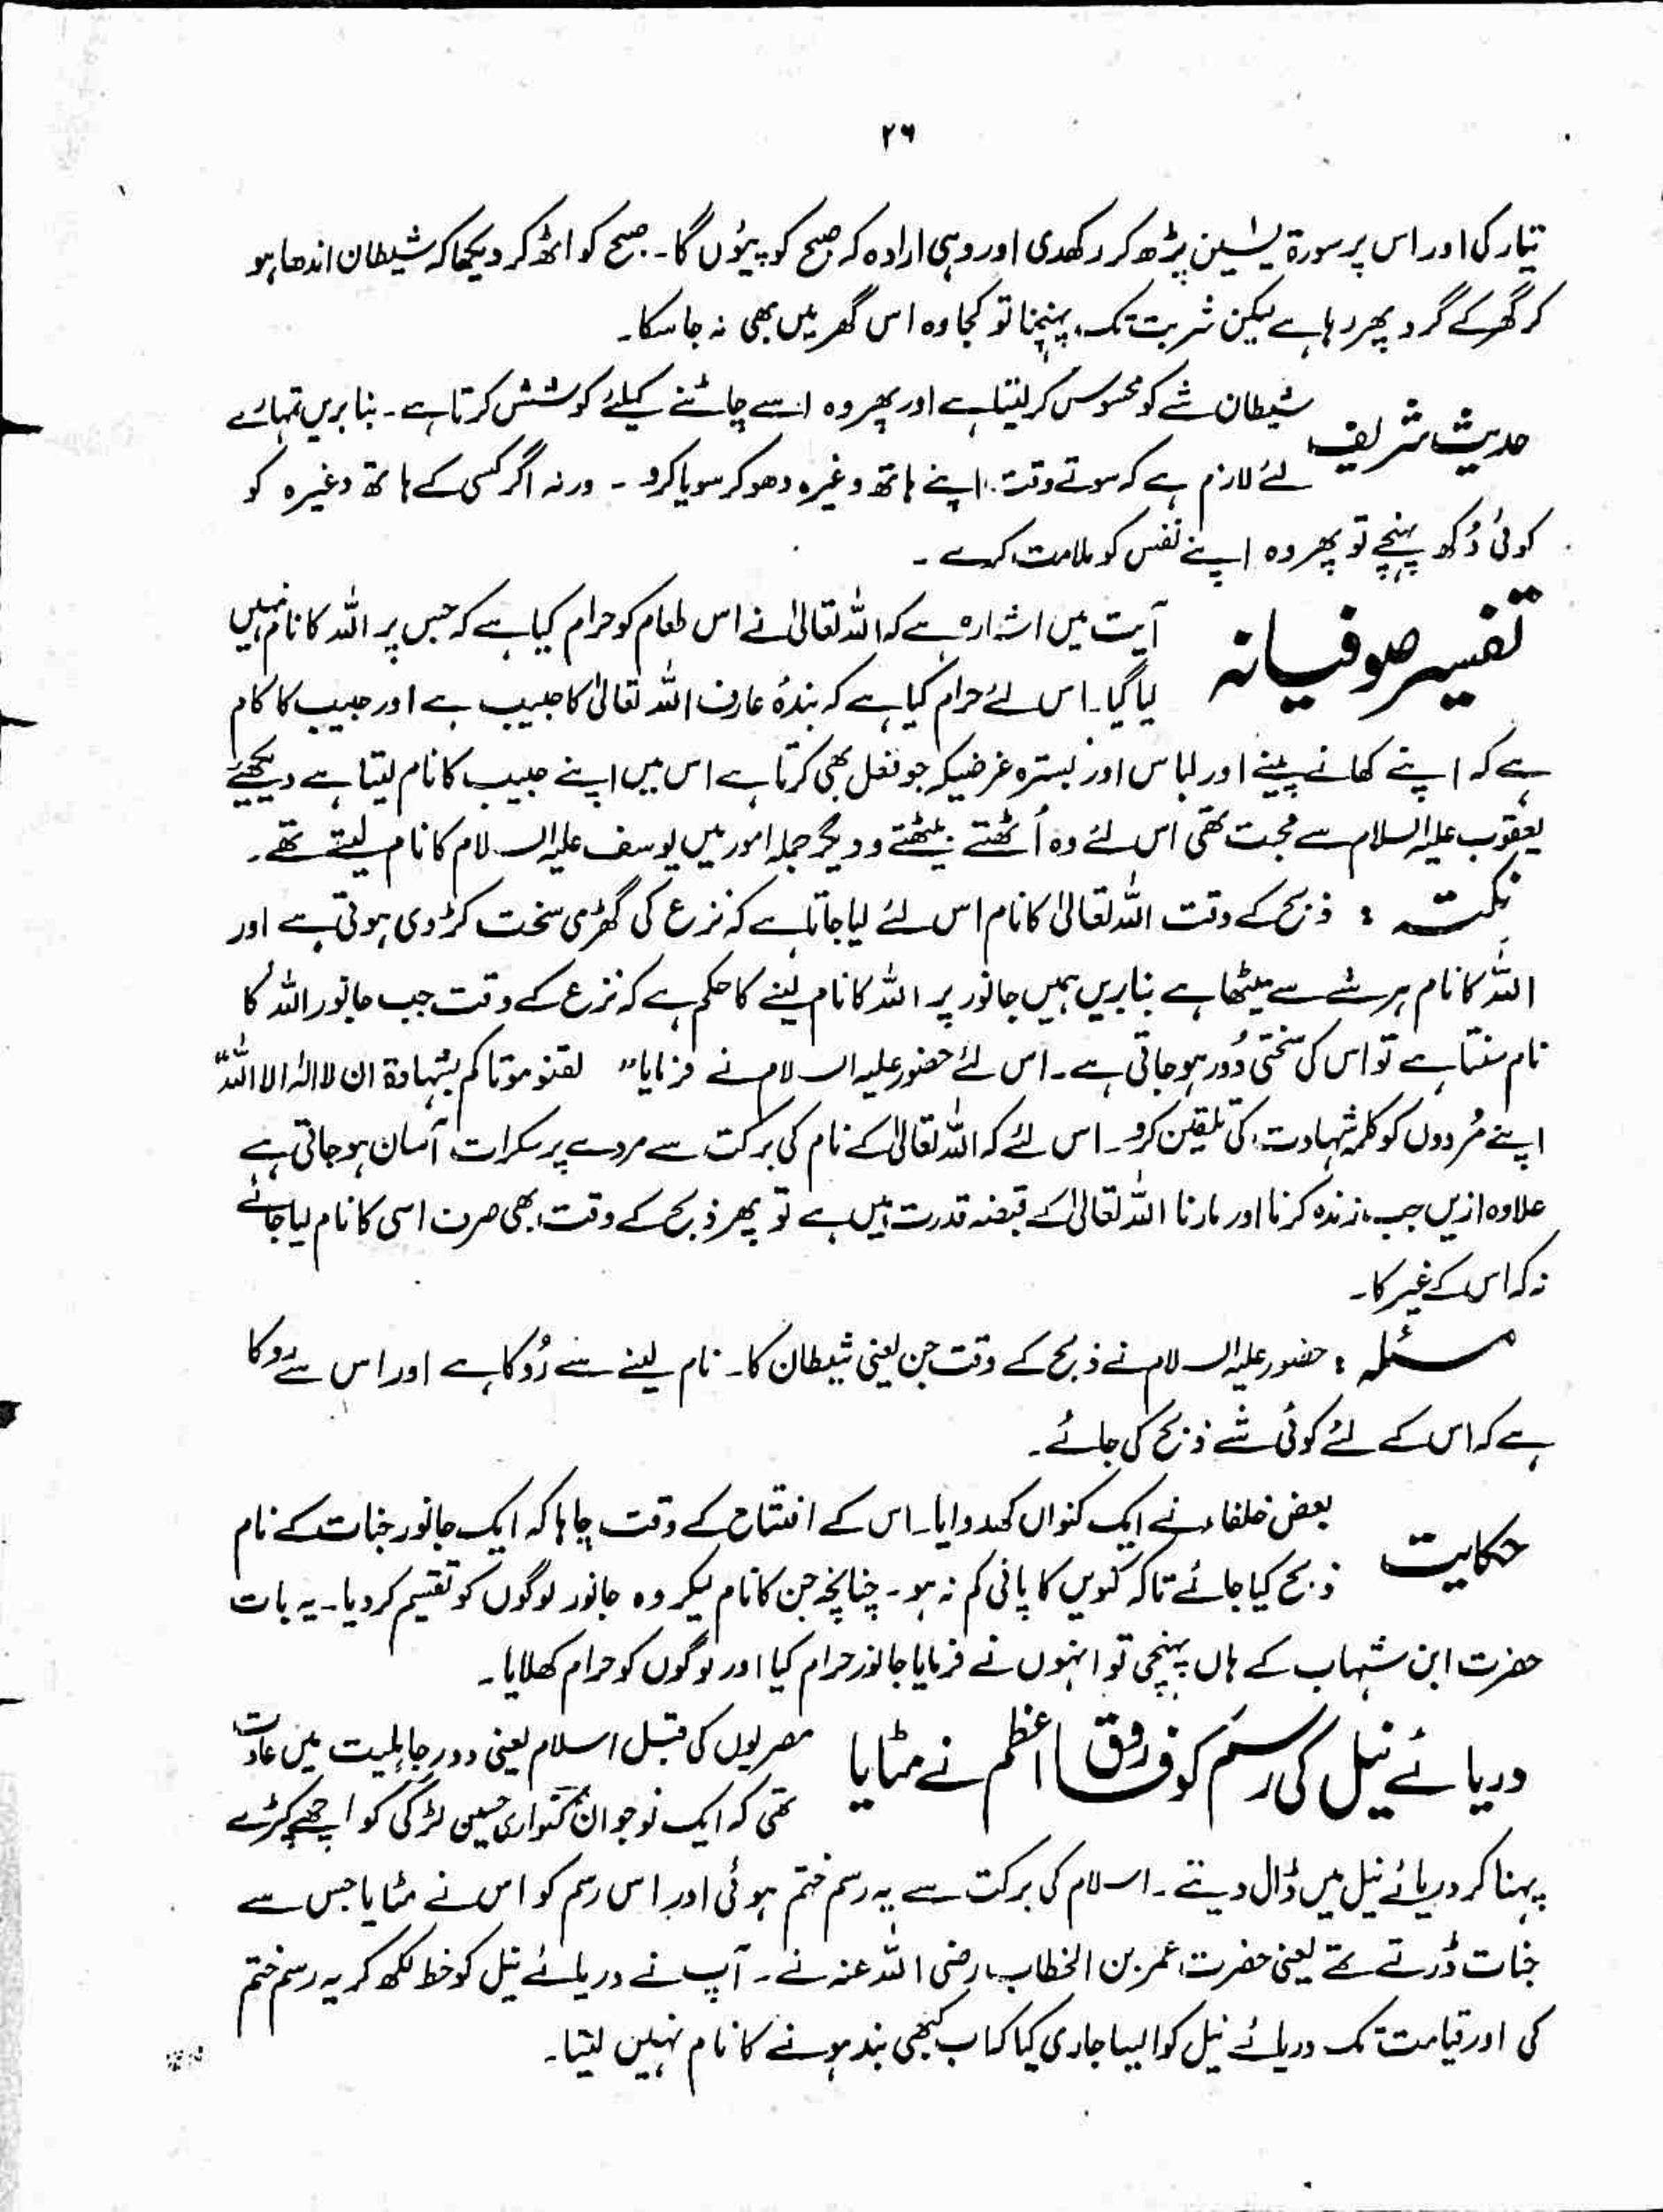 ۲۶
تیار کی اور اس پر سورۃ یٰسین پڑھ کر رکھدی اور وہی ارادہ کہ صبح کو پیئوں گا۔ صبح کو اٹھ کر دیکھا کہ شیطان اندھا ہو
کر گھر کے گرد پھر رہا ہے لیکن شربت تک پہنچنا تو کجا وہ اس گھر میں بھی نہ جا سکا۔
حدیث شریف شیطان شے کو محسوس کر لیتا ہے اور پھر وہ اسے چاٹنے کیلئے کوشش کرتا ہے۔ بنابریں تمہارے
لئے لازم ہے کہ سوتے وقت اپنے ہاتھ وغیرہ دھو کر سویا کرو۔ ورنہ اگر کسی کے ہاتھ وغیرہ کو
کوئی دُکھ پہنچے تو پھر وہ اپنے نفس کو ملامت کرے۔
تفسیر صوفیانہ آیت میں اشارہ ہے کہ اللہ تعالیٰ نے اس طعام کو حرام کیا ہے کہ جس پر اللہ کا نام نہیں
لیا گیا۔ اس لئے حرام کیا ہے کہ بندۂ عارف اللہ تعالیٰ کا حبیب ہے اور حبیب کا کام
ہے کہ اپنے کھانے پینے اور لباس اور بسترہ غرضیکہ جو فعل بھی کرتا ہے اس میں اپنے حبیب کا نام لیتا ہے دیکھیئے
یعقوب علیہ السلام سے محبت تھی اس لئے وہ اُٹھتے بیٹھتے و دیگر جملہ امور میں یوسف علیہ السلام کا نام لیتے تھے۔
نکتہ : ذبح کے وقت اللہ تعالیٰ کا نام اس لئے لیا جاتا ہے کہ نزع کی گھڑی سخت کڑوی ہوتی ہے اور
اللہ کا نام ہر شے سے میٹھا ہے بنابریں ہمیں جانور پر اللہ کا نام لینے کا حکم ہے کہ نزع کے وقت جب جانور اللہ کا
نام سنتا ہے تو اس کی سختی دُور ہو جاتی ہے۔ اس لئے حضور علیہ السلام نے فرمایا" لقنو موتاکم بشہادۃ ان لا الٰہ الا اللہ
اپنے مُردوں کو کلمہ شہادت کی تلقین کرو۔ اس لئے کہ اللہ تعالیٰ کے نام کی برکت سے مردے پر سکرات آسان ہو جاتی ہے
علاوہ ازیں جب زندہ کرنا اور مارنا اللہ تعالیٰ کے قبضہ قدرت میں ہے تو پھر ذبح کے وقت بھی صرف اسی کا نام لیا جائے
نہ کہ اس کے غیر کا۔
مسئلہ : حضور علیہ السلام نے ذبح کے وقت جن یعنی شیطان کا۔ نام لینے سے رُوکا ہے اور اس سے روکا
ہے کہ اس کے لئے کوئی شے ذبح کی جائے۔
حکایت بعض خلفاء نے ایک کنواں کھدوایا۔ اس کے افتتاح کے وقت چاہا کہ ایک جانور جنات کے نام
ذبح کیا جائے تاکہ کنویں کا پانی کم نہ ہو۔ چنانچہ جن کا نام لیکر وہ جانور لوگوں کو تقسیم کر دیا۔ یہ بات
حضرت ابن شہاب کے ہاں پہنچی تو انہوں نے فرمایا جانور حرام کیا اور لوگوں کو حرام کھلایا۔
دریائے نیل کی رسم کو فاروق اعظم نے مٹایا مصریوں کی قبل اسلام یعنی دور جاہلیت میں عادت
تھی کہ ایک نوجوان کنواری حسین لڑکی کو اچھے کپڑے
پہنا کر دریائے نیل میں ڈال دیتے۔ اسلام کی برکت سے یہ رسم ختم ہوئی اور اس رسم کو اس نے مٹایا جس سے
جنات ڈرتے تھے یعنی حضرت عمر بن الخطاب رضی اللہ عنہ نے۔ آپ نے دریائے نیل کو خط لکھ کر یہ رسم ختم
کی اور قیامت تک دریائے نیل کو ایسا جاری کیا کہ اب کبھی بند ہونے کا نام نہیں لیتا۔